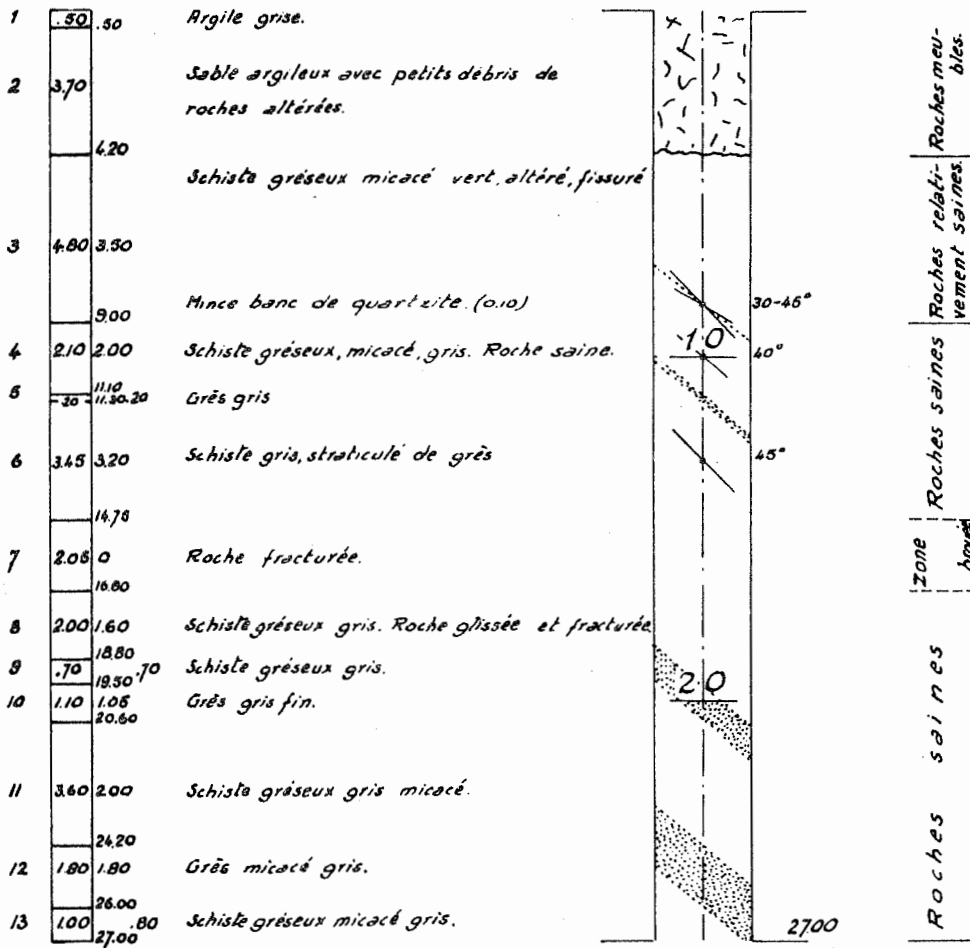 1 .50 .50 Argile grise.
2 3.70 Sable argileux avec petits débris de
roches altérées.
4.20
Schiste gréseux micacé vert, altéré, fissuré
3 4.80 3.50
Mince banc de quartzite. (0.10)
9.00
4 2.10 2.00 Schiste gréseux, micacé, gris. Roche saine.
11.10
5 .20 11.30 .20 Grès gris
6 3.45 3.20 Schiste gris, straticulé de grès
14.75
7 2.05 0 Roche fracturée.
16.80
8 2.00 1.60 Schiste gréseux gris. Roche glissée et fracturée
18.80
9 .70 .70 Schiste gréseux gris.
19.50
10 1.10 1.05 Grès gris fin.
20.60
11 3.60 2.00 Schiste gréseux gris micacé.
24.20
12 1.80 1.80 Grès micacé gris.
26.00
13 1.00 .80 Schiste gréseux micacé gris.
27.00
30-45°
10
40°
45°
20
27.00
Roches meu-
bles.
Roches relati-
vement saines.
Roches saines
zone
Roches saines